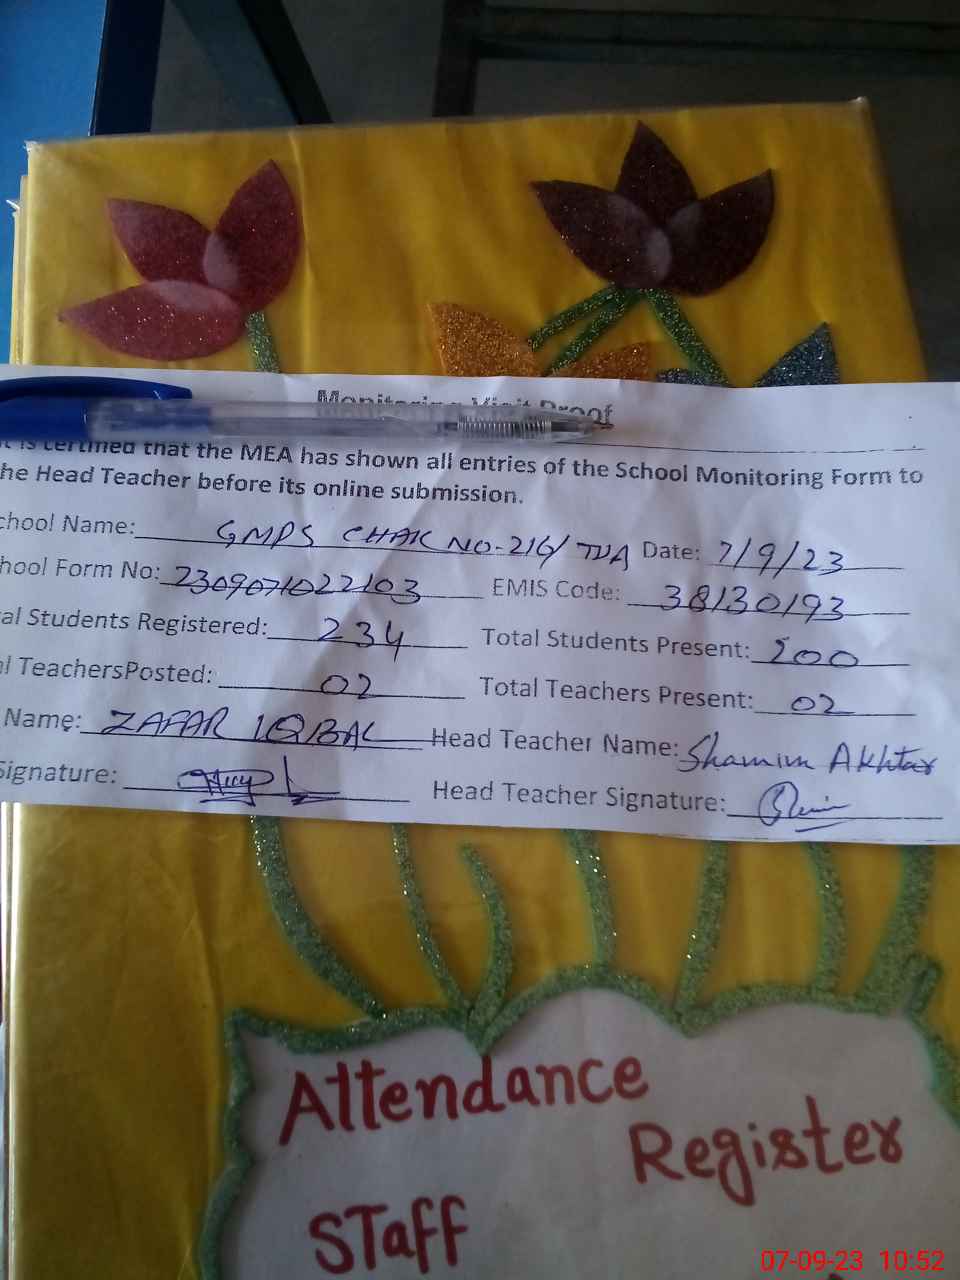 Monitoring Visit Proof
t is certified that the MEA has shown all entries of the School Monitoring Form to
he Head Teacher before its online submission.
chool Name: GMPS CHAK NO-216/TDA Date: 7/9/23
hool Form No: 2309071022103 EMIS Code: 38130193
al Students Registered: 234 Total Students Present: 200
l TeachersPosted: 02 Total Teachers Present: 02
Name: ZAFAR IQBAL Head Teacher Name: Shamim Akhtar
Signature: Head Teacher Signature:
Attendance
Register
STaff
07-09-23 10:52